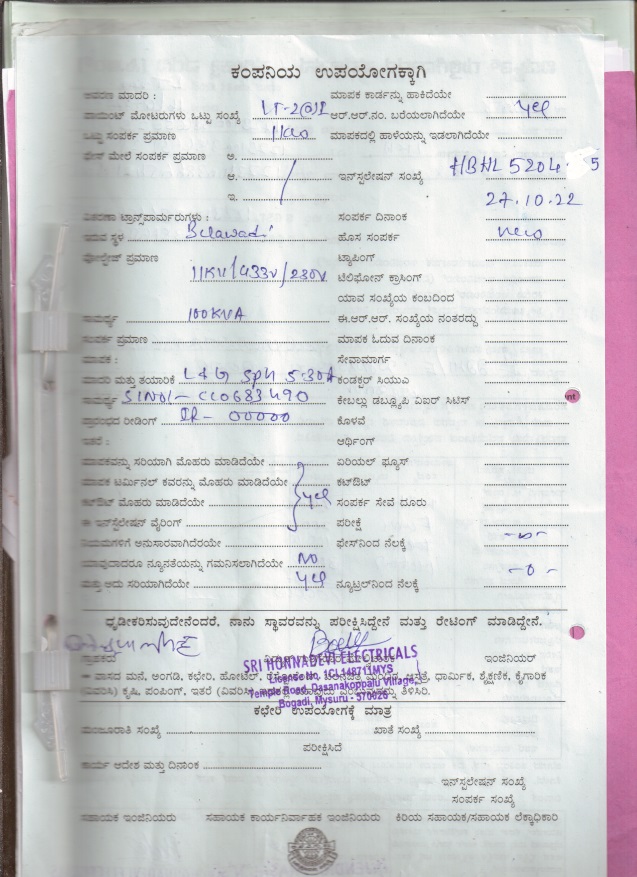 ಕಂಪನಿಯ ಉಪಯೋಗಕ್ಕಾಗಿ
ಆವರಣ ಮಾದರಿ : ಮಾಪಕ ಕಾರ್ಡನ್ನು ಹಾಕಿದೆಯೇ
ಪಾಯಿಂಟ್ ಮೋಟರುಗಳು ಒಟ್ಟು ಸಂಖ್ಯೆ LT-2(a)II ಆರ್.ಆರ್.ನಂ. ಬರೆಯಲಾಗಿದೆಯೇ yes
ಒಟ್ಟು ಸಂಪರ್ಕ ಪ್ರಮಾಣ 1KW ಮಾಪಕದಲ್ಲಿ ಹಾಳೆಯನ್ನು ಇಡಲಾಗಿದೆಯೇ
ಫೇಸ್ ಮೇಲೆ ಸಂಪರ್ಕ ಪ್ರಮಾಣ ಅ.
ಆ. ಇನ್‌ಸ್ಟಲೇಷನ್ ಸಂಖ್ಯೆ HBHL 5204 5
ಇ. 27.10.22
ವಿತರಣಾ ಟ್ರಾನ್ಸ್‌ಪಾರ್ಮರುಗಳು : ಸಂಪರ್ಕ ದಿನಾಂಕ
ಇರುವ ಸ್ಥಳ Belawadi ಹೊಸ ಸಂಪರ್ಕ new
ವೋಲ್ಟೇಜ್ ಪ್ರಮಾಣ ಟ್ಯಾಪಿಂಗ್
11KV/433V/230V ಟೆಲಿಫೋನ್ ಕ್ರಾಸಿಂಗ್
ಯಾವ ಸಂಖ್ಯೆಯ ಕಂಬದಿಂದ
ಸಾಮರ್ಥ್ಯ 100KVA ಈ.ಆರ್.ಆರ್. ಸಂಖ್ಯೆಯ ನಂತರದ್ದು
ಸಂಪರ್ಕ ಪ್ರಮಾಣ ಮಾಪಕ ಓದುವ ದಿನಾಂಕ
ಮಾಪಕ : ಸೇವಾಮಾರ್ಗ
ಮಾದರಿ ಮತ್ತು ತಯಾರಿಕೆ L&G Sph 5-30A ಕಂಡಕ್ಟರ್ ಸಿಯುಎ
ಸಾಮರ್ಥ್ಯ SlNo/- CC0683490 ಕೇಬಲ್ಲು ಡಬ್ಲ್ಯೂಪಿ ವಿಐರ್ ಸಿಟಿಸ್
ಪ್ರಾರಂಭದ ರೀಡಿಂಗ್ IR- 00000 ಕೊಳವೆ
ಇತರೆ : ಆರ್ಥಿಂಗ್
ಮಾಪಕವನ್ನು ಸರಿಯಾಗಿ ಮೊಹರು ಮಾಡಿದೆಯೇ ಏರಿಯಲ್ ಫ್ಯೂಸ್
ಮಾಪಕ ಟರ್ಮಿನಲ್ ಕವರನ್ನು ಮೊಹರು ಮಾಡಿದೆಯೇ ಕಟ್‌ಔಟ್
ಕಟ್‌ಔಟ್ ಮೊಹರು ಮಾಡಿದೆಯೇ yes ಸಂಪರ್ಕ ಸೇವೆ ದೂರು
ಈ ಇನ್‌ಸ್ಟಲೇಷನ್ ವೈರಿಂಗ್ ಪರೀಕ್ಷೆ
ನಿಯಮಗಳಿಗೆ ಅನುಸಾರವಾಗಿದೆರೆಯೇ ಫೇಸ್‌ನಿಂದ ನೆಲಕ್ಕೆ -0-
ಯಾವುದಾದರೂ ನ್ಯೂನತೆಯನ್ನು ಗಮನಿಸಲಾಗಿದೆಯೇ NO
ಮತ್ತು ಅದು ಸರಿಯಾಗಿದೆಯೇ yes ನ್ಯೂಟ್ರಲ್‌ನಿಂದ ನೆಲಕ್ಕೆ -0-
ಧೃಡೀಕರಿಸುವುದೇನೆಂದರೆ, ನಾನು ಸ್ಥಾವರವನ್ನು ಪರೀಕ್ಷಿಸಿದ್ದೇನೆ ಮತ್ತು ರೇಟಿಂಗ್ ಮಾಡಿದ್ದೇನೆ.
ಗ್ರಾಹಕರು ಇಂಜಿನಿಯರ್
SRI HONNADEVI ELECTRICALS
Licence No. 1CL148711MYS
Temple Road, Dasanakoppalu Village,
Bogadi, Mysuru - 570026
ವಾಸದ ಮನೆ, ಅಂಗಡಿ, ಕಛೇರಿ, ಹೋಟೆಲ್, ಧಾರ್ಮಿಕ, ಶೈಕ್ಷಣಿಕ, ಕೈಗಾರಿಕ
ಕೃಷಿ, ಪಂಪಿಂಗ್, ಇತರೆ ತಿಳಿಸಿರಿ.
ಕಛೇರಿ ಉಪಯೋಗಕ್ಕೆ ಮಾತ್ರ
ಮಂಜೂರಾತಿ ಸಂಖ್ಯೆ ಖಾತೆ ಸಂಖ್ಯೆ
ಪರೀಕ್ಷಿಸಿದೆ
ಕಾರ್ಯ ಆದೇಶ ಮತ್ತು ದಿನಾಂಕ
ಇನ್‌ಸ್ಟಲೇಷನ್ ಸಂಖ್ಯೆ
ಸಂಪರ್ಕ ಸಂಖ್ಯೆ
ಸಹಾಯಕ ಇಂಜಿನಿಯರು ಸಹಾಯಕ ಕಾರ್ಯನಿರ್ವಾಹಕ ಇಂಜಿನಿಯರು ಕಿರಿಯ ಸಹಾಯಕ/ಸಹಾಯಕ ಲೆಕ್ಕಾಧಿಕಾರಿ